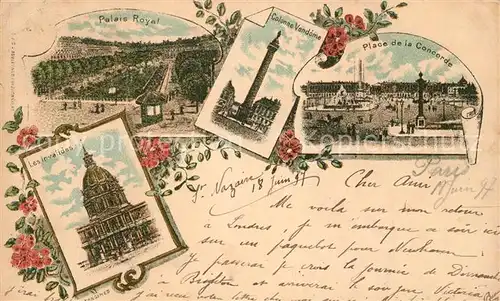 Palais Royal
Colonne Vendôme
Place de la Concorde
Les Invalides
Paris
18 Juin 97
St Nazaire 18 Juin 97
Cher Ami
Me voila sur mon retour
à Londres. Je m'embarque ce soir ici
sur un paquebot pour Newhaven
J'y passerai je crois la journée de Dimanche
à Brighton et arriverai le soir par Victoria